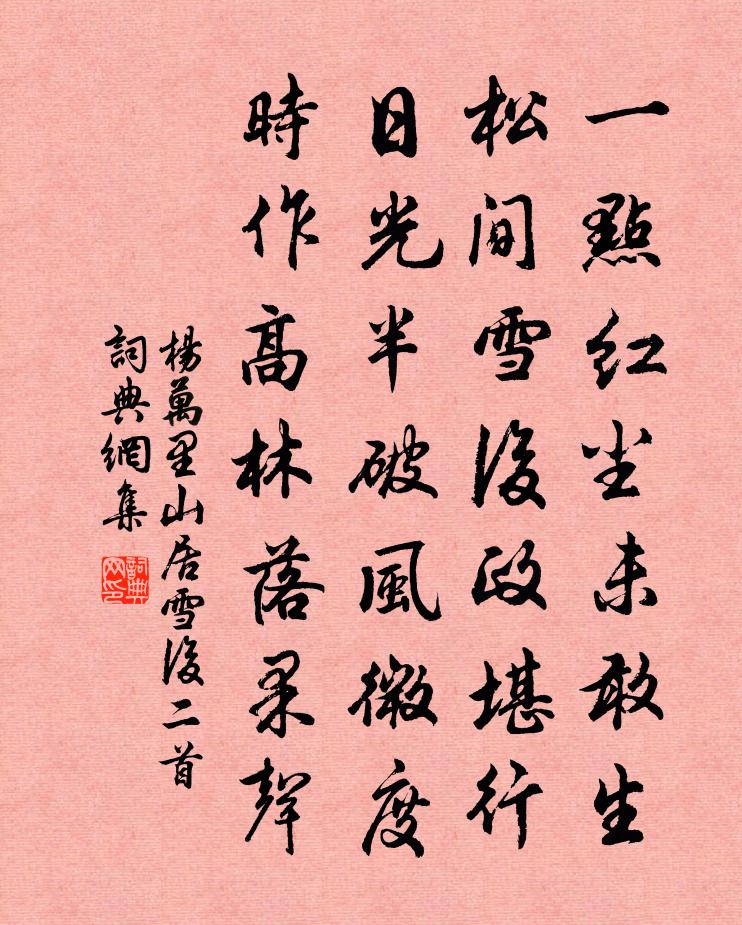 一點紅尘未敢生
松間雪後政堪行
日光半破風微度
時作高林落果聲
楊萬里山居雪後二首
詞典網集
詞典网印